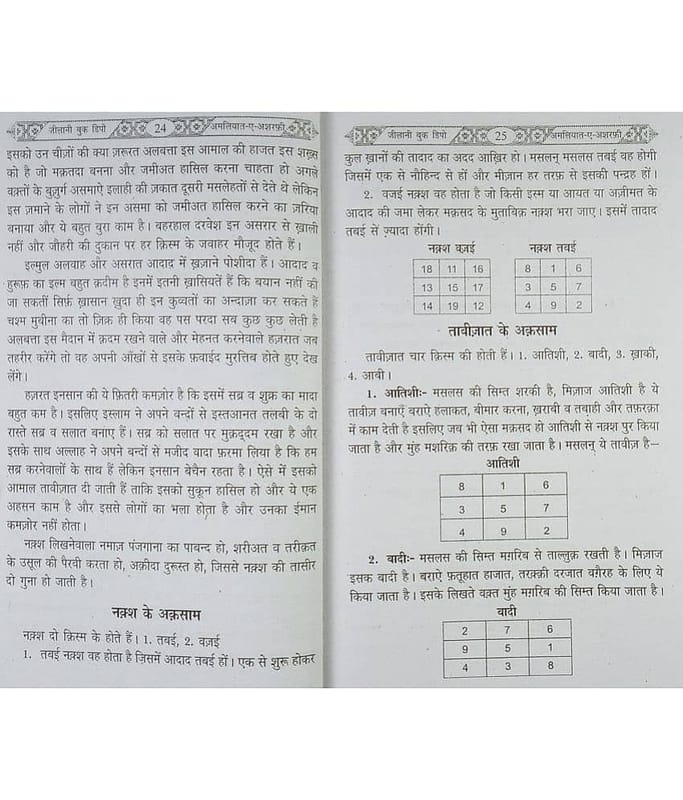 जीलानी बुक डिपो 24 अमलियात-ए-अशरफ़ी
इसको उन चीज़ों की क्या ज़रूरत अलबत्ता इस आमाल की हाजत इस शख़्स
को है जो मक़तदा बनना और जमीअत हासिल करना चाहता हो अगले
वक़्तों के बुज़ुर्ग असमाऐ इलाही की ज़कात दूसरी मसलेहतों से देते थे लेकिन
इस ज़माने के लोगों ने इन असमा को जमीअत हासिल करने का ज़रिया
बनाया और ये बहुत बुरा काम है। बहरहाल दरवेश इन असरार से ख़ाली
नहीं और जौहरी की दुकान पर हर क़िस्म के जवाहर मौजूद होते हैं।
इल्मुल अलवाह और असरात आदाद में ख़ज़ाने पोशीदा हैं। आदाद व
हुरूफ़ का इल्म बहुत क़दीम है इनमें इतनी ख़ासियतें हैं कि बयान नहीं की
जा सकतीं सिर्फ़ ख़ासान ख़ुदा ही इन कुव्वतों का अन्दाज़ा कर सकते हैं
चश्म मुबीना का तो ज़िक्र ही किया वह पस परदा सब कुछ कुछ लेती है
अलबत्ता इस मैदान में क़दम रखने वाले और मेहनत करनेवाले हज़रात जब
तहरीर करेंगे तो वह अपनी आँखों से इसके फ़वाईद मुरत्तिब होते हुए देख
लेंगे।
हज़रत इनसान की ये फ़ितरी कमज़ोर है कि इसमें सब्र व शुक्र का मादा
बहुत कम है। इसलिए इस्लाम ने अपने बन्दों से इस्तआनत तलबी के दो
रास्ते सब्र व सलात बनाए हैं। सब्र को सलात पर मुक़द्दम रखा है और
इसके साथ अल्लाह ने अपने बन्दों से मजीद वादा फ़रमा लिया है कि हम
सब्र करनेवालों के साथ हैं लेकिन इनसान बेचैन रहता है। ऐसे में इसको
आमाल तावीज़ात दी जाती हैं ताकि इसको सुकून हासिल हो और ये एक
अहसन काम है और इससे लोगों का भला होता है और उनका ईमान
कमज़ोर नहीं होता।
नक़्श लिखनेवाला नमाज़ पंजगाना का पाबन्द हो, शरीअत व तरीक़त
के उसूल की पैरवी करता हो, अक़ीदा दुरूस्त हो, जिससे नक़्श की तासीर
दो गुना हो जाती है।
नक़्श के अक़साम
नक़्श दो क़िस्म के होते हैं। 1. तबई, 2. वज़ई
1. तबई नक़्श वह होता है जिसमें आदाद तबई हों। एक से शुरू होकर
जीलानी बुक डिपो 25 अमलियात-ए-अशरफ़ी
कुल ख़ानों की तादाद का अदद आख़िर हो। मसलन् मसलस तबई वह होगी
जिसमें एक से नौहिन्द से हों और मीज़ान हर तरफ़ से इसकी पन्द्रह हों।
2. वजई नक़्श वह होता है जो किसी इस्म या आयत या अज़ीमत के
आदाद की जमा लेकर मक़सद के मुताबिक़ नक़्श भरा जाए। इसमें तादाद
तबई से ज़्यादा होंगी।
नक़्श वज़ई नक़्श तबई
18 11 16 8 1 6
13 15 17 3 5 7
14 19 12 4 9 2
तावीज़ात के अक़साम
तावीज़ात चार क़िस्म की होती हैं। 1. आतिशी, 2. बादी, 3. ख़ाकी,
4. आबी।
1. आतिशीः- मसलस की सिम्त शरकी है, मिज़ाज आतिशी है ये
तावीज़ बनाएँ बराऐ हलाकत, बीमार करना, ख़राबी व तबाही और तफ़रक़ा
में काम देती है इसलिए जब भी ऐसा मक़सद हो आतिशी से नक़्श पुर किया
जाता है और मुंह मशरिक़ की तरफ़ रखा जाता है। मसलन् ये तावीज़ है—
आतिशी
8 1 6
3 5 7
4 9 2
2. बादीः- मसलस की सिम्त मग़रिब से ताल्लुक़ रखती है। मिज़ाज
इसक बादी है। बराऐ फ़तूहात हाजात, तरक़्क़ी दरजात वग़ैरह के लिए ये
किया जाता है। इसके लिखते वक़्त मुंह मग़रिब की सिम्त किया जाता है।
बादी
2 7 6
9 5 1
4 3 8